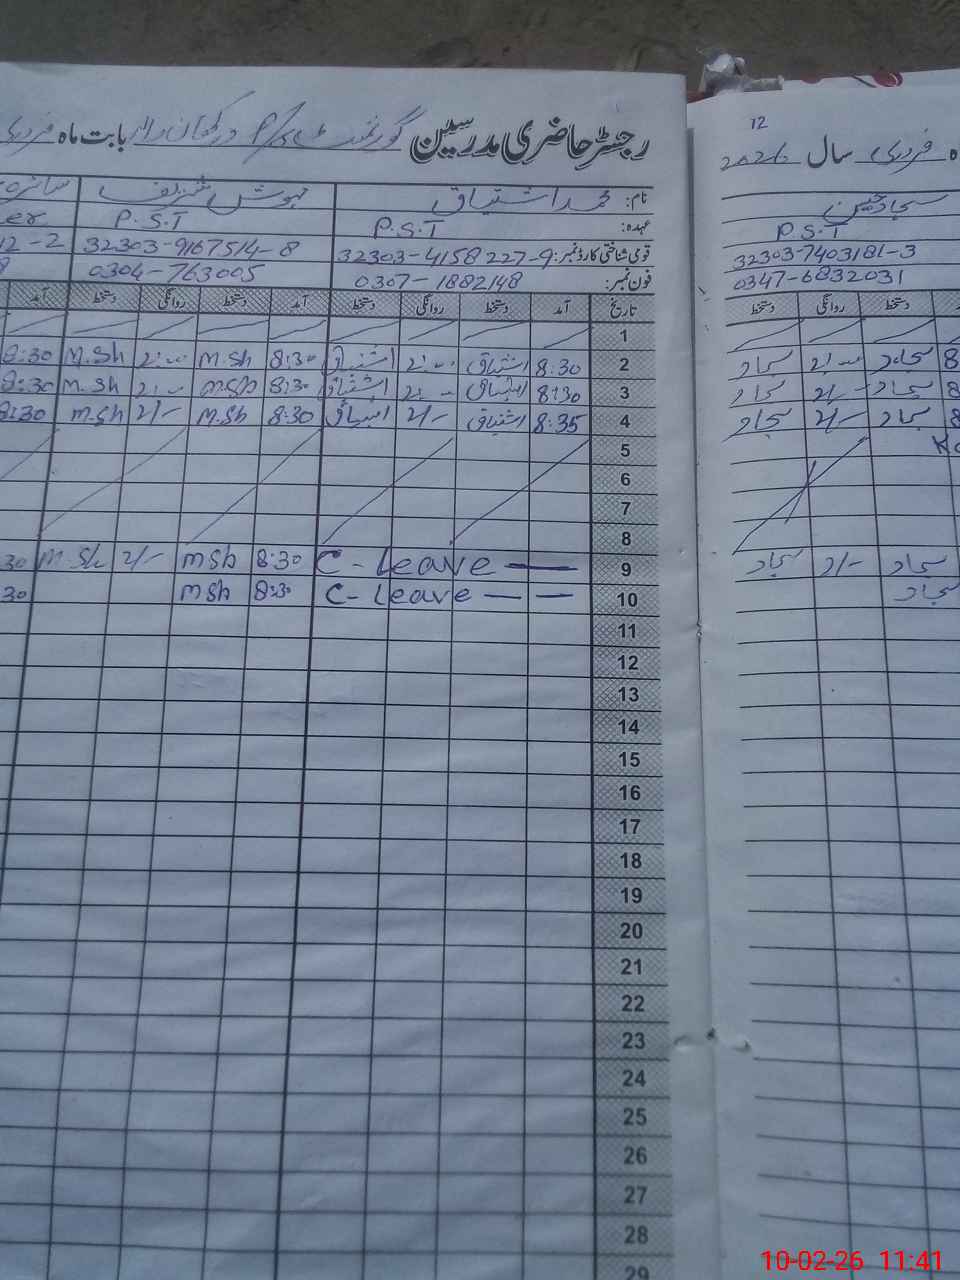 رجسٹر حاضری مدرسین گورنمنٹ P/S بابت ماہ فروری
نام: محمد اشتیاق مہوش شریف سائرہ
عہدہ: P.S.T P.S.T er
قومی شناختی کارڈ نمبر: 32303-4158227-9 32303-9167514-8 12-2
فون نمبر: 0307-1882148 0304-763005 8
تاریخ آمد دستخط روانگی دستخط آمد دستخط روانگی دستخط آمد
1
2 8:30 اشتیاق 2:00 اشتیاق 8:30 M.Sh 2:00 M.Sh 8:30
3 8:30 اشتیاق 2:00 اشتیاق 8:30 M.Sh 2:00 M.Sh 8:30
4 8:35 اشتیاق 2/- اشتیاق 8:30 M.Sh 2/- M.Sh 8:30
5
6
7
8
9 C-Leave — 8:30 MSh 2/- M.Sh 30
10 C-Leave — — 8:30 MSh 30
11
12
13
14
15
16
17
18
19
20
21
22
23
24
25
26
27
28
29
12
ہ فروری سال 2026
سجاد حسین
P.S.T
32303-7403181-3
0347-6832031
دستخط روانگی دستخط
8 سجاد 2:00 سجاد
8 سجاد 2/- سجاد
8 سجاد 2/- سجاد
سجاد 2/- سجاد
سجاد
10-02-26 11:41